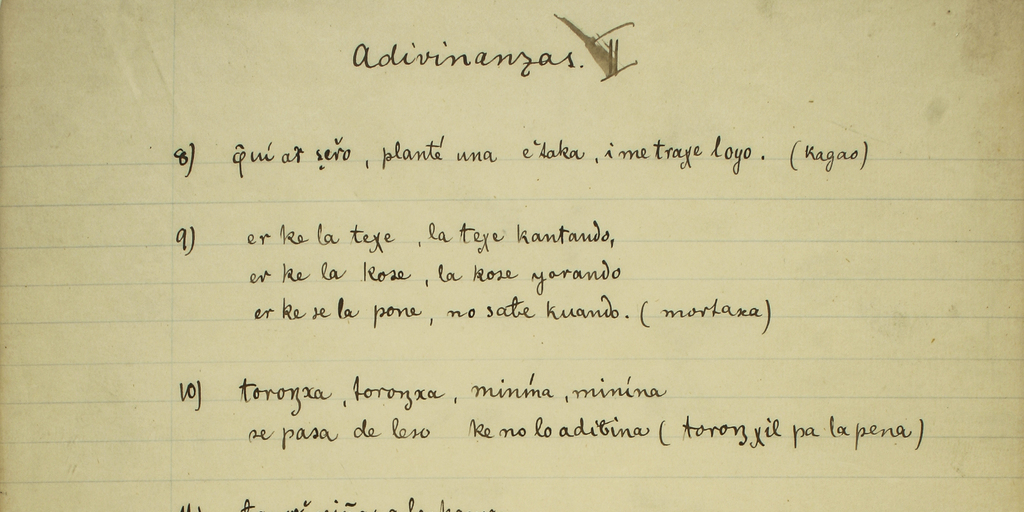 Adivinanzas. II
8) q̃uí ar̆ sȩr̆o, planté una ĕstaka, i me traχe loyo. (kagao)
9) er ke la teχe, la teχe kantando,
er ke la kose, la kose yorando
er ke se la pone, no sabe kuando. (mortaxa)
10) toronʒxa, toronʒxa, minína, minína
se pasa de leso ke no lo adibina (toronʒχil pa la pena)